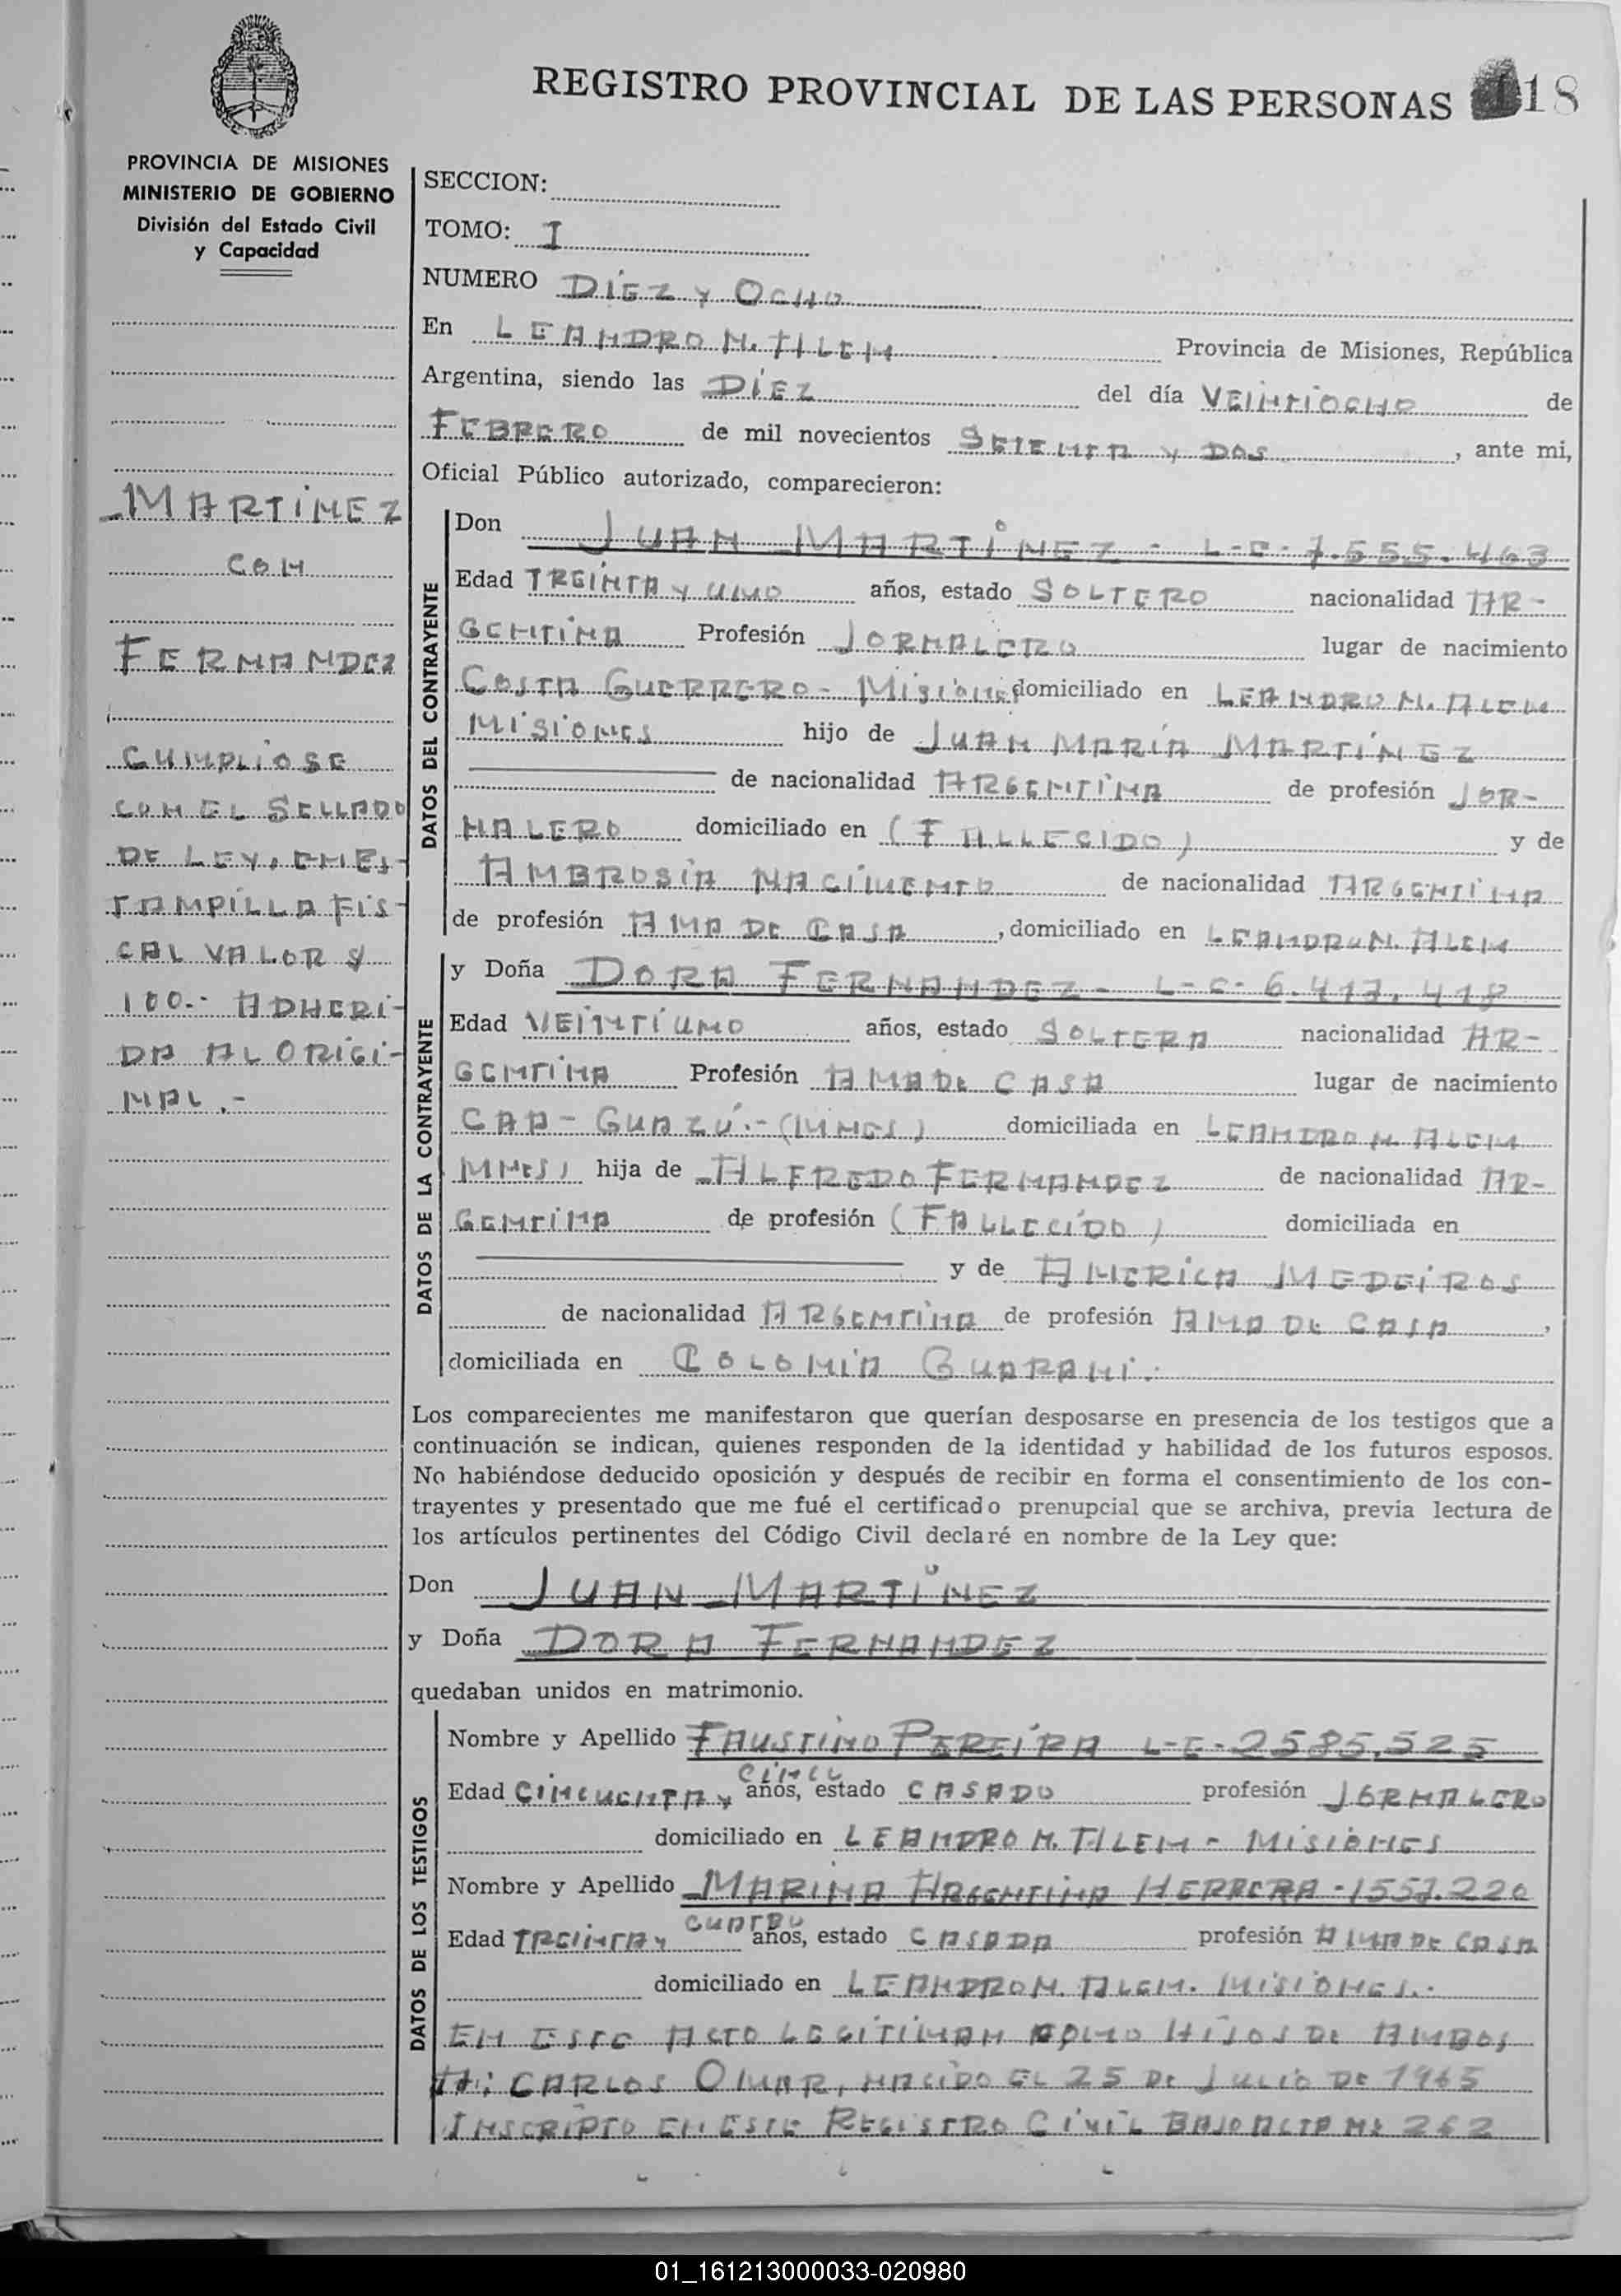 REGISTRO PROVINCIAL DE LAS PERSONAS 118
PROVINCIA DE MISIONES
MINISTERIO DE GOBIERNO
División del Estado Civil
y Capacidad
MARTINEZ
CON
FERNANDEZ
CUMPLIOSE
CON EL SELLADO
DE LEY, EN ES-
TAMPILLA FIS-
CAL VALOR $
100.- ADHERI-
DA AL ORIGI-
NAL.-
SECCION:
TOMO: I
NUMERO DIEZ y OCHO
En LEANDRO N. ALEM Provincia de Misiones, República
Argentina, siendo las DIEZ del día VEINTIOCHO de
FEBRERO de mil novecientos SETENTA y DOS, ante mi,
Oficial Público autorizado, comparecieron:
DATOS DEL CONTRAYENTE
Don JUAN MARTINEZ - L-E-7.555.463
Edad TREINTA y UNO años, estado SOLTERO nacionalidad AR-
GENTINA Profesión JORNALERO lugar de nacimiento
COSTA GUERRERO - Misiones domiciliado en LEANDRO N. ALEM
MISIONES hijo de JUAN MARÍA MARTINEZ
de nacionalidad ARGENTINA de profesión JOR-
NALERO domiciliado en (FALLECIDO) y de
AMBROSIA NACIMENTO de nacionalidad ARGENTINA
de profesión AMA DE CASA, domiciliado en LEANDRO N. ALEM
DATOS DE LA CONTRAYENTE
y Doña DORA FERNANDEZ - L-C- 6.417.418
Edad VEINTIUNO años, estado SOLTERA nacionalidad AR-
GENTINA Profesión AMA DE CASA lugar de nacimiento
CAA-GUAZÚ.-(MNES) domiciliada en LEANDRO N. ALEM
MNES) hija de ALFREDO FERNANDEZ de nacionalidad AR-
GENTINA de profesión (FALLECIDO) domiciliada en
y de AMERICA MEDEIROS
de nacionalidad ARGENTINA de profesión AMA DE CASA,
domiciliada en COLONIA GUARANI.
Los comparecientes me manifestaron que querían desposarse en presencia de los testigos que a
continuación se indican, quienes responden de la identidad y habilidad de los futuros esposos.
No habiéndose deducido oposición y después de recibir en forma el consentimiento de los con-
trayentes y presentado que me fué el certificado prenupcial que se archiva, previa lectura de
los artículos pertinentes del Código Civil declaré en nombre de la Ley que:
Don JUAN MARTINEZ
y Doña DORA FERNANDEZ
quedaban unidos en matrimonio.
DATOS DE LOS TESTIGOS
Nombre y Apellido FAUSTINO PEREIRA L-E-2585.525
Edad CINCUENTA y CINCO años, estado CASADO profesión JORNALERO
domiciliado en LEANDRO N. ALEM - MISIONES
Nombre y Apellido MARINA ARGENTINA HERRERA - 1557.220
Edad TREINTA y CUATRO años, estado CASADA profesión AMA DE CASA
domiciliado en LEANDRO N. ALEM. MISIONES.-
EN ESTE ACTO LEGITIMAN COMO HIJOS DE AMBOS
A: CARLOS OMAR, NACIDO EL 25 DE JULIO DE 1965
INSCRIPTO EN ESTE REGISTRO CIVIL BAJO ACTA Nº 262
01_161213000033-020980